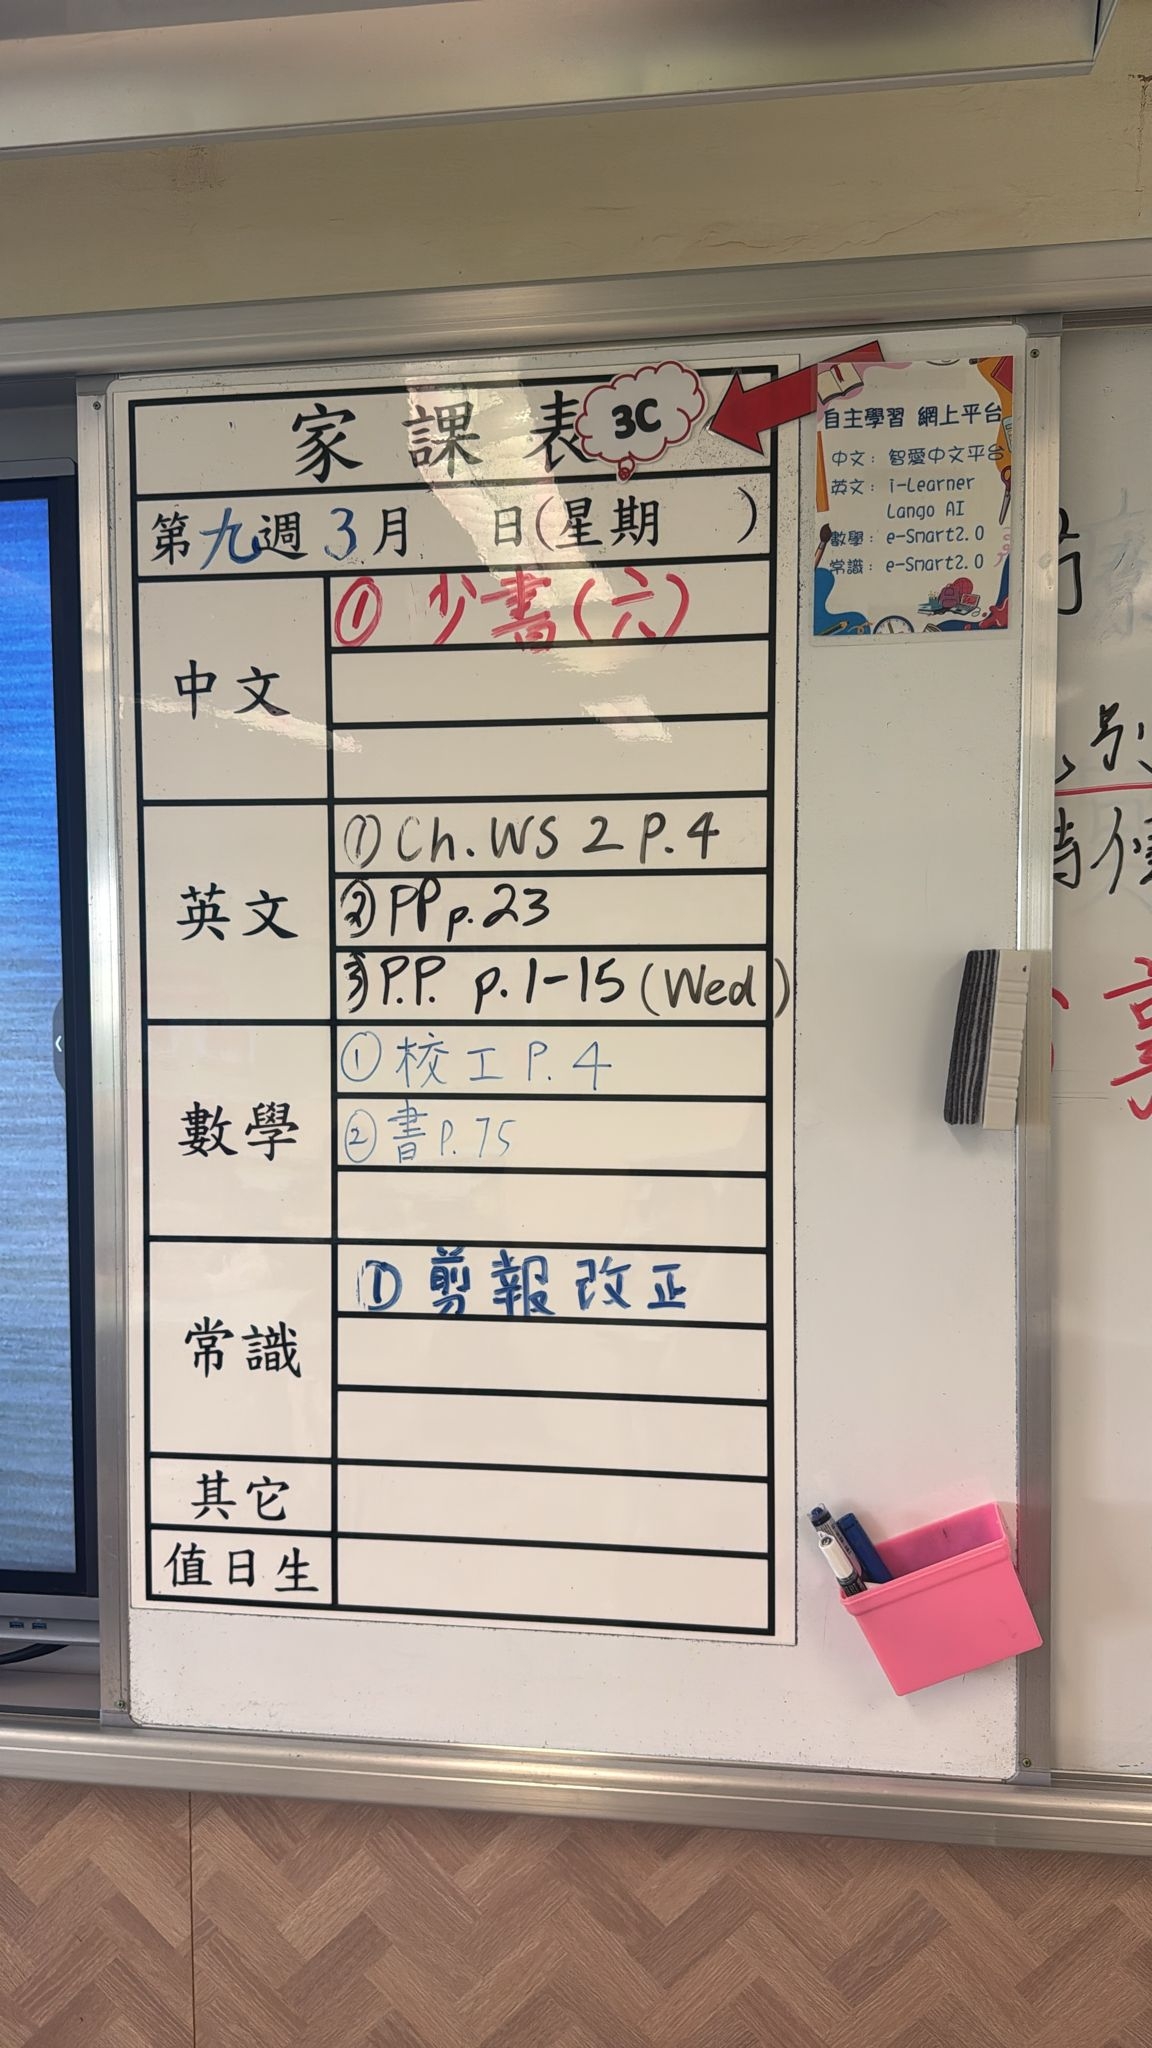 家課表
3C
第九週 3月 日(星期 )
中文
① 少書(六)
英文
① Ch. WS 2 P.4
② PP p.23
③ P.P. p.1-15 (Wed)
數學
① 校工 P.4
② 書 P.75
常識
① 剪報改正
其它
值日生
自主學習 網上平台
中文: 智愛中文平台
英文: i-Learner
Lango AI
數學: e-Smart2.0
常識: e-Smart2.0